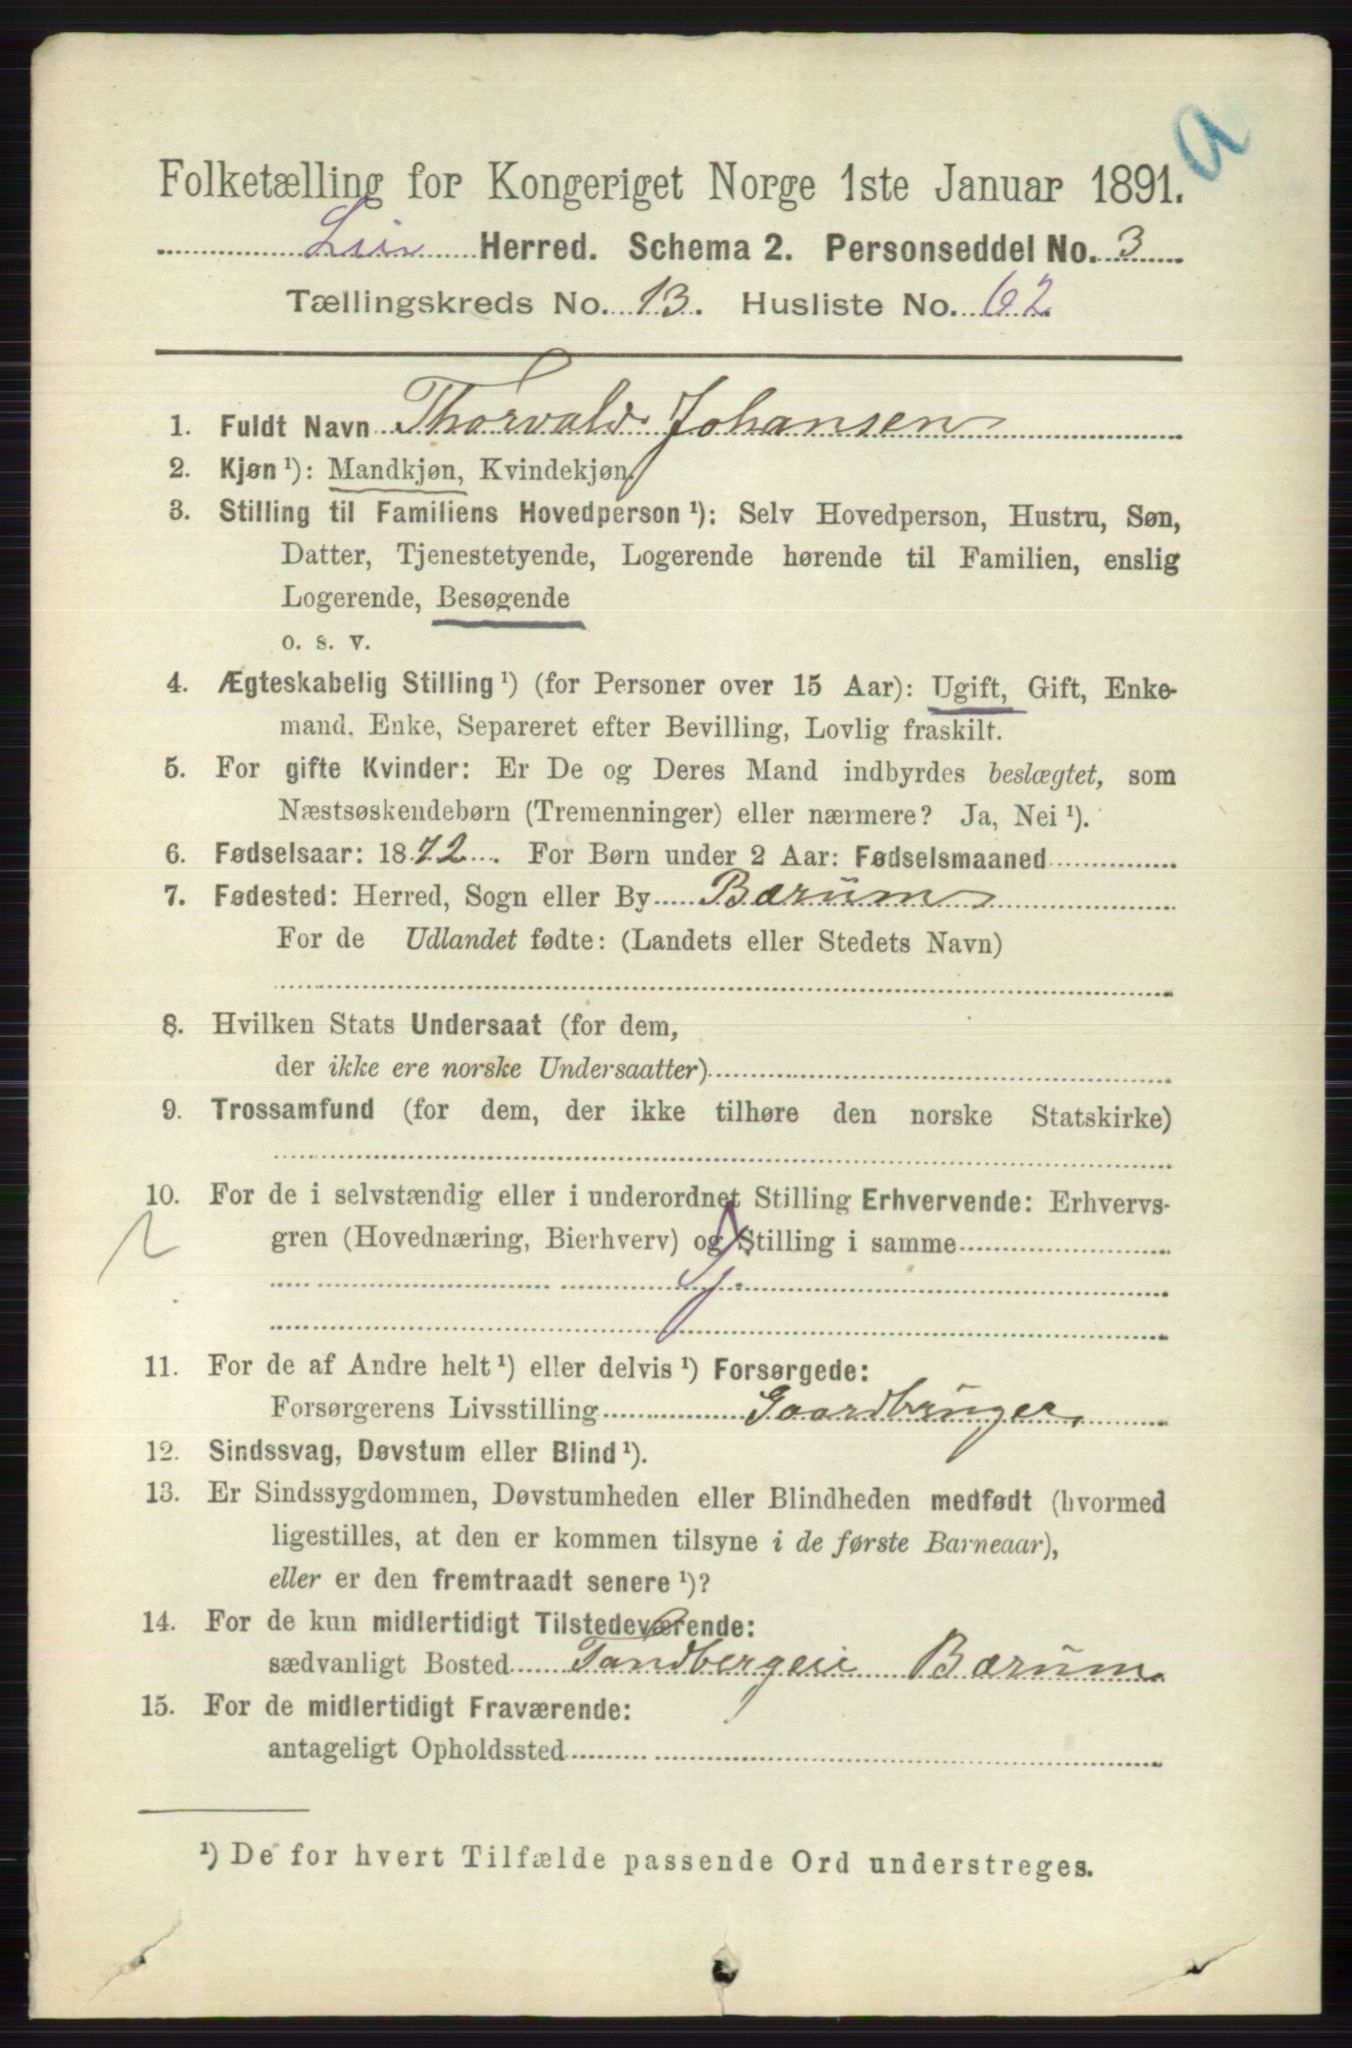 a
Folketælling for Kongeriget Norge 1ste Januar 1891.
Lier Herred. Schema 2. Personseddel No. 3
Tællingskreds No. 13. Husliste No. 62
1. Fuldt Navn Thorvald Johansen
2. Kjøn ¹): Mandkjøn, Kvindekjøn.
3. Stilling til Familiens Hovedperson ¹): Selv Hovedperson, Hustru, Søn,
Datter, Tjenestetyende, Logerende hørende til Familien, enslig
Logerende, Besøgende
o. s. v.
4. Ægteskabelig Stilling ¹) (for Personer over 15 Aar): Ugift, Gift, Enke-
mand, Enke, Separeret efter Bevilling, Lovlig fraskilt.
5. For gifte Kvinder: Er De og Deres Mand indbyrdes beslægtet, som
Næstsøskendebørn (Tremenninger) eller nærmere? Ja, Nei ¹).
6. Fødselsaar: 1872. For Børn under 2 Aar: Fødselsmaaned
7. Fødested: Herred, Sogn eller By Bærum
For de Udlandet fødte: (Landets eller Stedets Navn)
8. Hvilken Stats Undersaat (for dem,
der ikke ere norske Undersaatter)
9. Trossamfund (for dem, der ikke tilhøre den norske Statskirke)
10. For de i selvstændig eller i underordnet Stilling Erhvervende: Erhvervs-
gren (Hovednæring, Bierhverv) og Stilling i samme
11. For de af Andre helt ¹) eller delvis ¹) Forsørgede:
Forsørgerens Livsstilling Gaardbruger
12. Sindssvag, Døvstum eller Blind ¹).
13. Er Sindssygdommen, Døvstumheden eller Blindheden medfødt (hvormed
ligestilles, at den er kommen tilsyne i de første Barneaar),
eller er den fremtraadt senere ¹)?
14. For de kun midlertidigt Tilstedeværende:
sædvanligt Bosted Tandbergeie Bærum
15. For de midlertidigt Fraværende:
antageligt Opholdssted
¹) De for hvert Tilfælde passende Ord understreges.